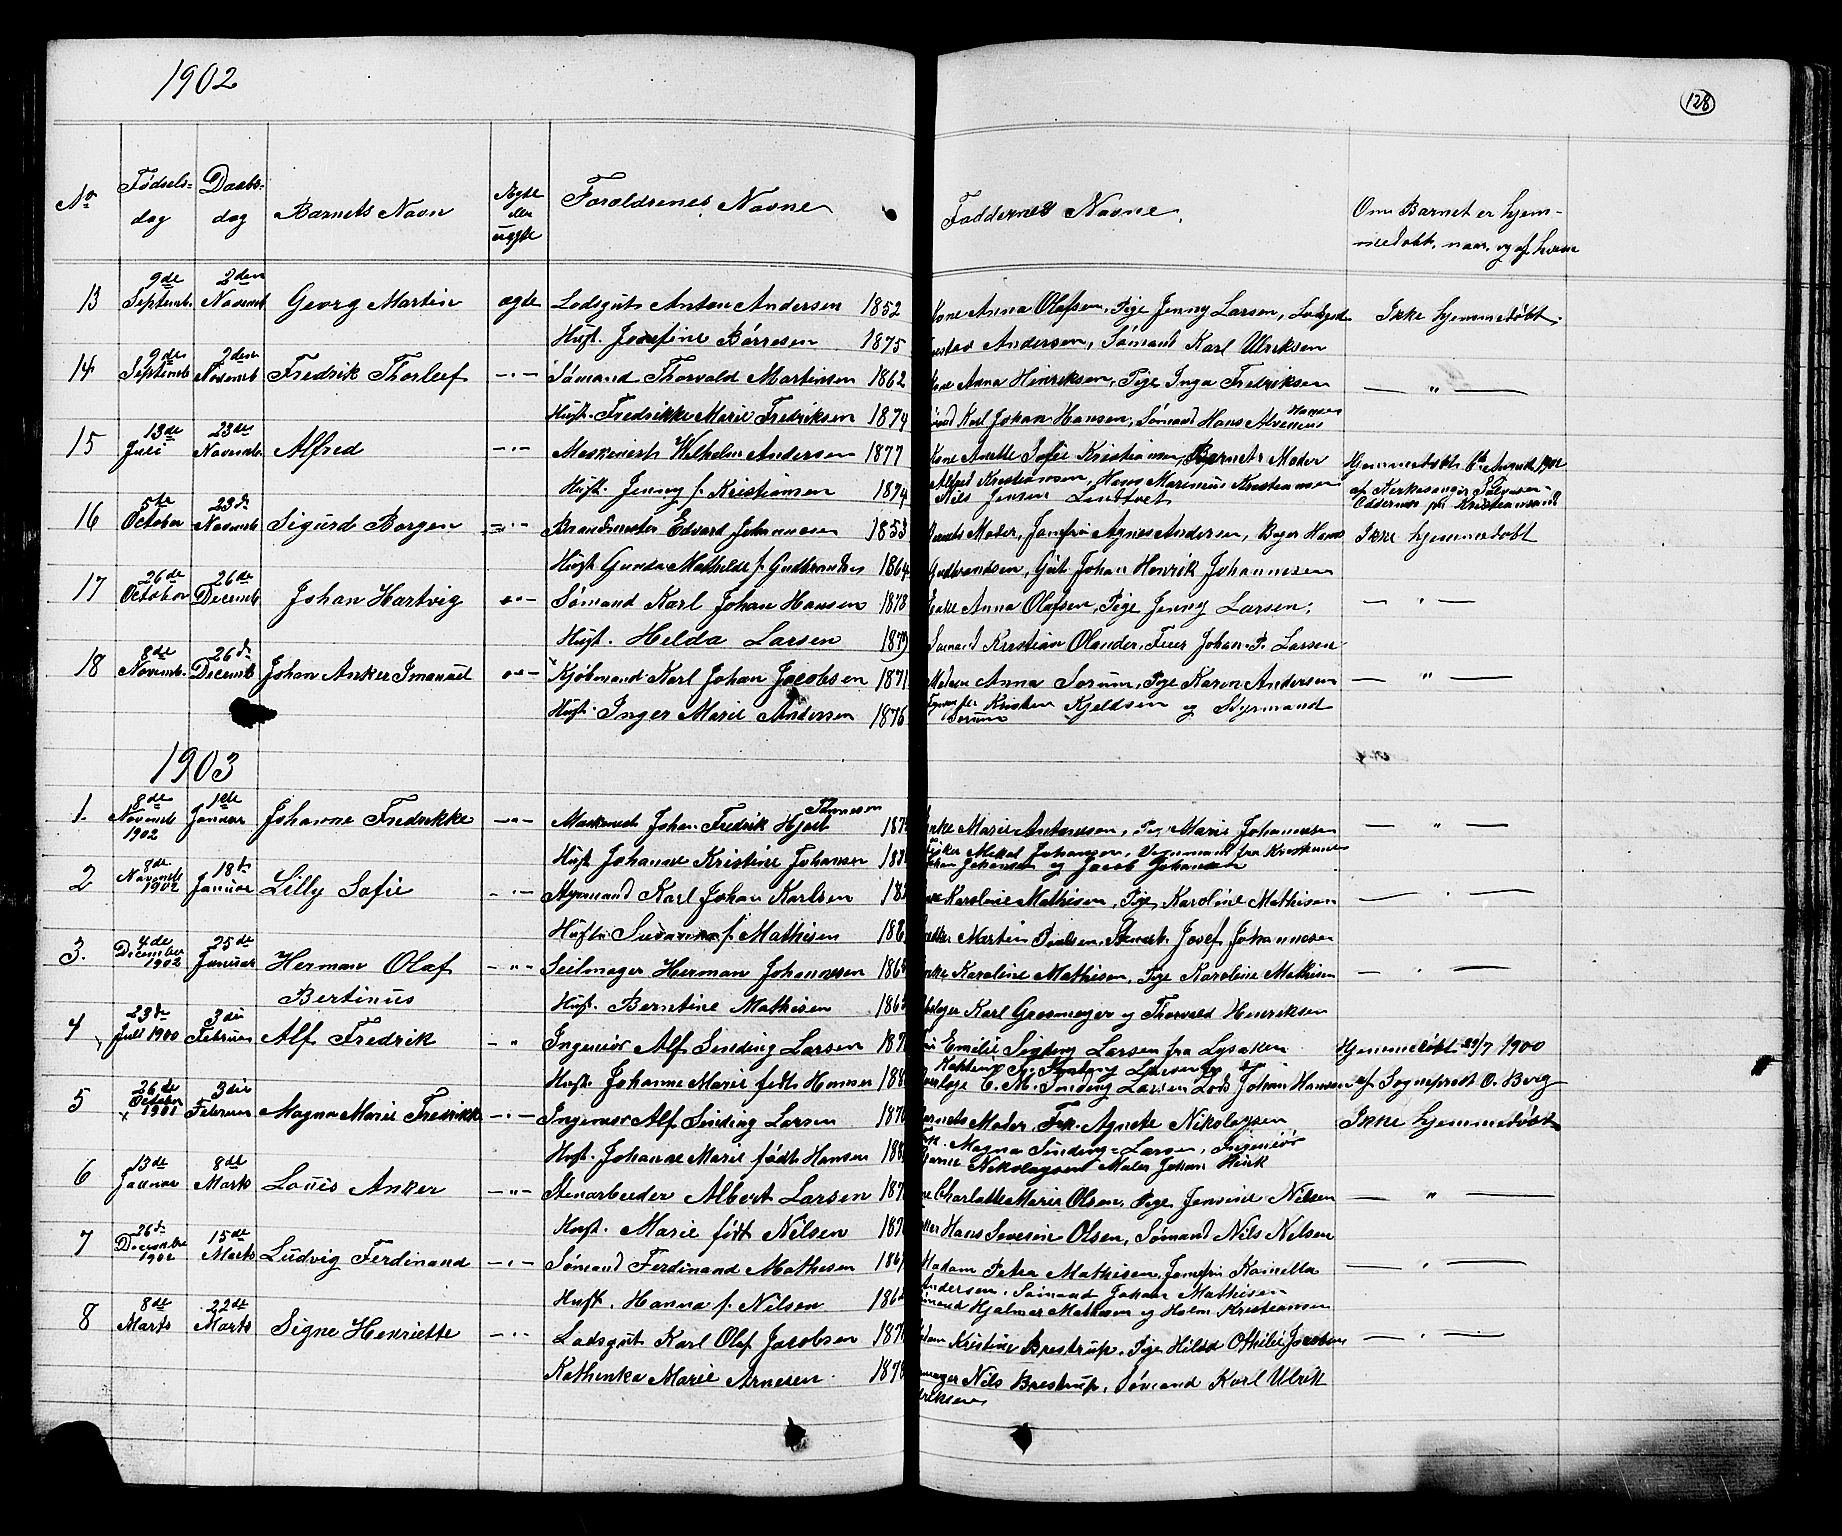 1902
128
No
Fødsels-
dag
Daabs-
dag
Barnets Navn
Ægte
eller
uægte
Forældrenes Navne
Faddernes Navne
Om Barnet er hjem-
medøbt, naar, og af hvem
13 9de Septemb. 2den Novemb Georg Martin ægte Lodsgut Anton Andersen 1852 Kone Anna Olafsen, Pige Jenny Larsen, Ikke hjemmedøbt.
Hust. Josefine Børresen 1875 Andersen, Sømand Karl Ulriksen
14 9de Septemb 2den Novemb Fredrik Thorleif -"- Sømand Thorvald Martinsen 1862 Kone Anna Henriksen, Pige Inga Fredriksen — " —
Hust. Fredrikke Marie Fredriksen 1874 Karl Johan Hansen, Sømand Hans Hansen
15 13de Juli 23de Novemb. Alfred -"- Maskinist Wilhelm Andersen 1877 Kone Anette Sofie Kristiansen, Barnets Moder Hjemmedøbt 1902
Hust. Jenny f. Kristiansen 1874 Alfred Kristiansen, Hans Marinius Kristiansen af Kirkesanger
Nils Jensen Lindtvet Oddernes pr Kristiansand
16 5te October 23de Novemb Sigurd Borgen -"- Brandmester Edvard Johannesen 1853 Barnets Moder, Jomfru Agnes Andersen, Hans Ikke hjemmedøbt
Hust Gunda Mathilde f. Gudbrandsen 1864 Gudbrandsen, Gut Johan Henrik Johannesen
17 26de October 26de Decemb Johan Hartvig -"- Sømand Karl Johan Hansen 1878 Enke Anna Olafsen, Pige Jenny Larsen, — " —
Hust. Helda Larsen 1879 Sømand Kristian Olander, Johan P. Larsen
18 8de Novemb. 26de Decemb Johan Anker Imanuel -"- Kjøbmand Karl Johan Jacobsen 1871 Madam Anna Sorum, Pige Karen Andersen — " —
Hust. Inger Marie Andersen 1876 Kristen Kjeldsen og Styrmand
Sorum
1903
1. 8de Novemb 1902 1ste Januar Johanne Fredrikke -"- Maskinist Johan Fredrik Hjort Thomesen 187 Enke Marie Antonesen, Pige Marie Johannesen — " —
Hust Johanne Kristine Johansen 188 Fisker Mikal Johansen, fra
Johan Johansen og Jacob Johansen
2 8de Novemb 1902 18de Januar Lilly Sofie -"- Styrmand Karl Johan Karlsen 18 Karoline Mathisen, Pige Karoline Mathisen — " —
Hustr. Susanna f. Mathisen 188 Martin Paulsen, Stuert Josef Johannesen
3. 4de December 1902 25de Januar Herman Olaf -"- Seilmager Herman Johannesen 186 Enke Karoline Mathisen, Pige Karoline Mathisen — " —
Bertinus Hust. Berntine Mathisen 186 Karl Grosmager og Thorvald Henriksen
4 23de Juli 1900 3die Februar Alf Fredrik -"- Ingeniør Alf Sinding Larsen 187 Emilie Sinding Larsen fra Lysaker Hjemmedøbt 29/7 1900
Hust. Johanne Marie født Hansen 188 Kaptein A. Sinding Larsen og
C. M. Sinding Larsen Lods Johan Hansen af Sogneprest O. Berg
5 26de October 1901 3die Februar Magna Marie Fredrikke -"- Ingeniør Alf Sinding Larsen 187 Barnets Moder, Frk. Agnete Nikolaysen Ikke hjemmedøbt
Hust. Johanne Marie født Hansen 188 Frk. Magna Sinding-Larsen, Ingeniør
Nikolaysen Maler Johan
6 13de Januar 8de Marts Louis Anker -"- Stenarbeider Albert Larsen 187 Charlotte Marie Olsen, Pige Jensine Nilsen — " —
Hust. Marie født Nilsen 187 Hans Severin Olsen, Sømand Nils Nilsen
7 26de December 1902 15de Marts Ludvig Ferdinand -"- Sømand Ferdinand Mathisen 186 Madam Petra Mathisen, Jomfru Kamilla — " —
Hust. Hanna f. Nilsen 186 Andersen, Sømand Johan Mathisen
Hjalmar Mathisen og Holm Kristiansen
8 8de Marts 22de Marts Signe Henriette -"- Lodsgut Karl Olaf Jacobsen 187 Madam Kristine Brestrup, Pige Hilda Othilie Jacobsen — " —
Kathinka Marie Arnesen 187 Nils Brestrup, Sømand Karl Ulrik